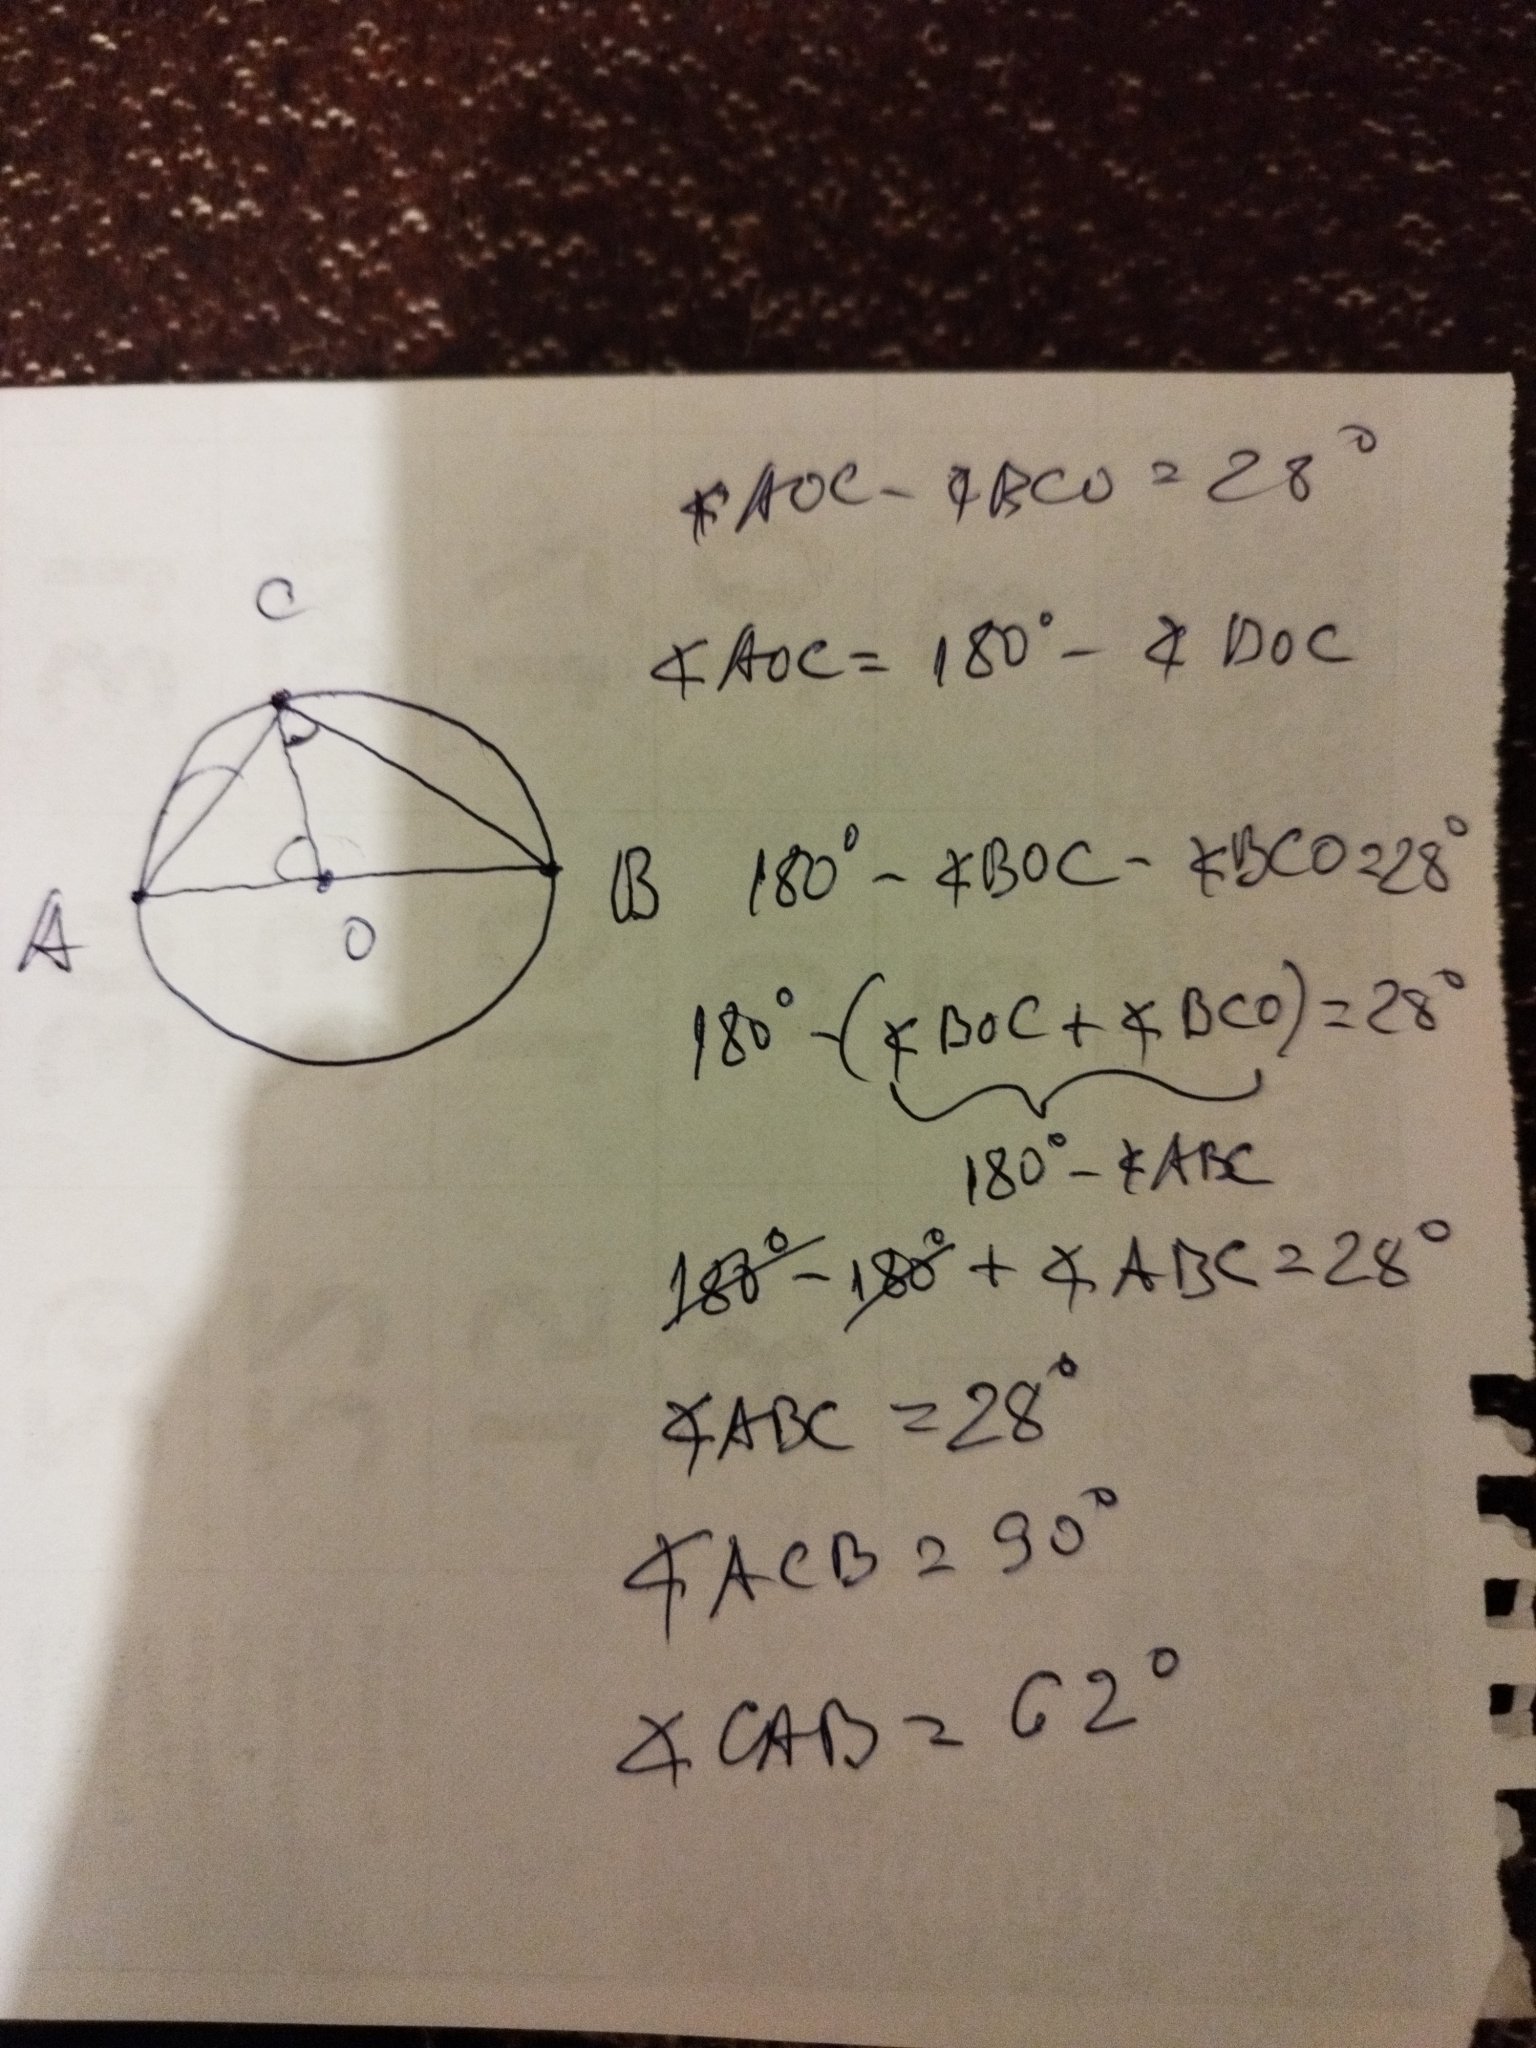 ∡AOC - ∡BCO = 28°
∡AOC = 180° - ∡BOC
C
A
O
B
180° - ∡BOC - ∡BCO = 28°
180° - (∡BOC + ∡BCO) = 28°
180° - ∡ABC
180° - 180° + ∡ABC = 28°
∡ABC = 28°
∡ACB = 90°
∡CAB = 62°